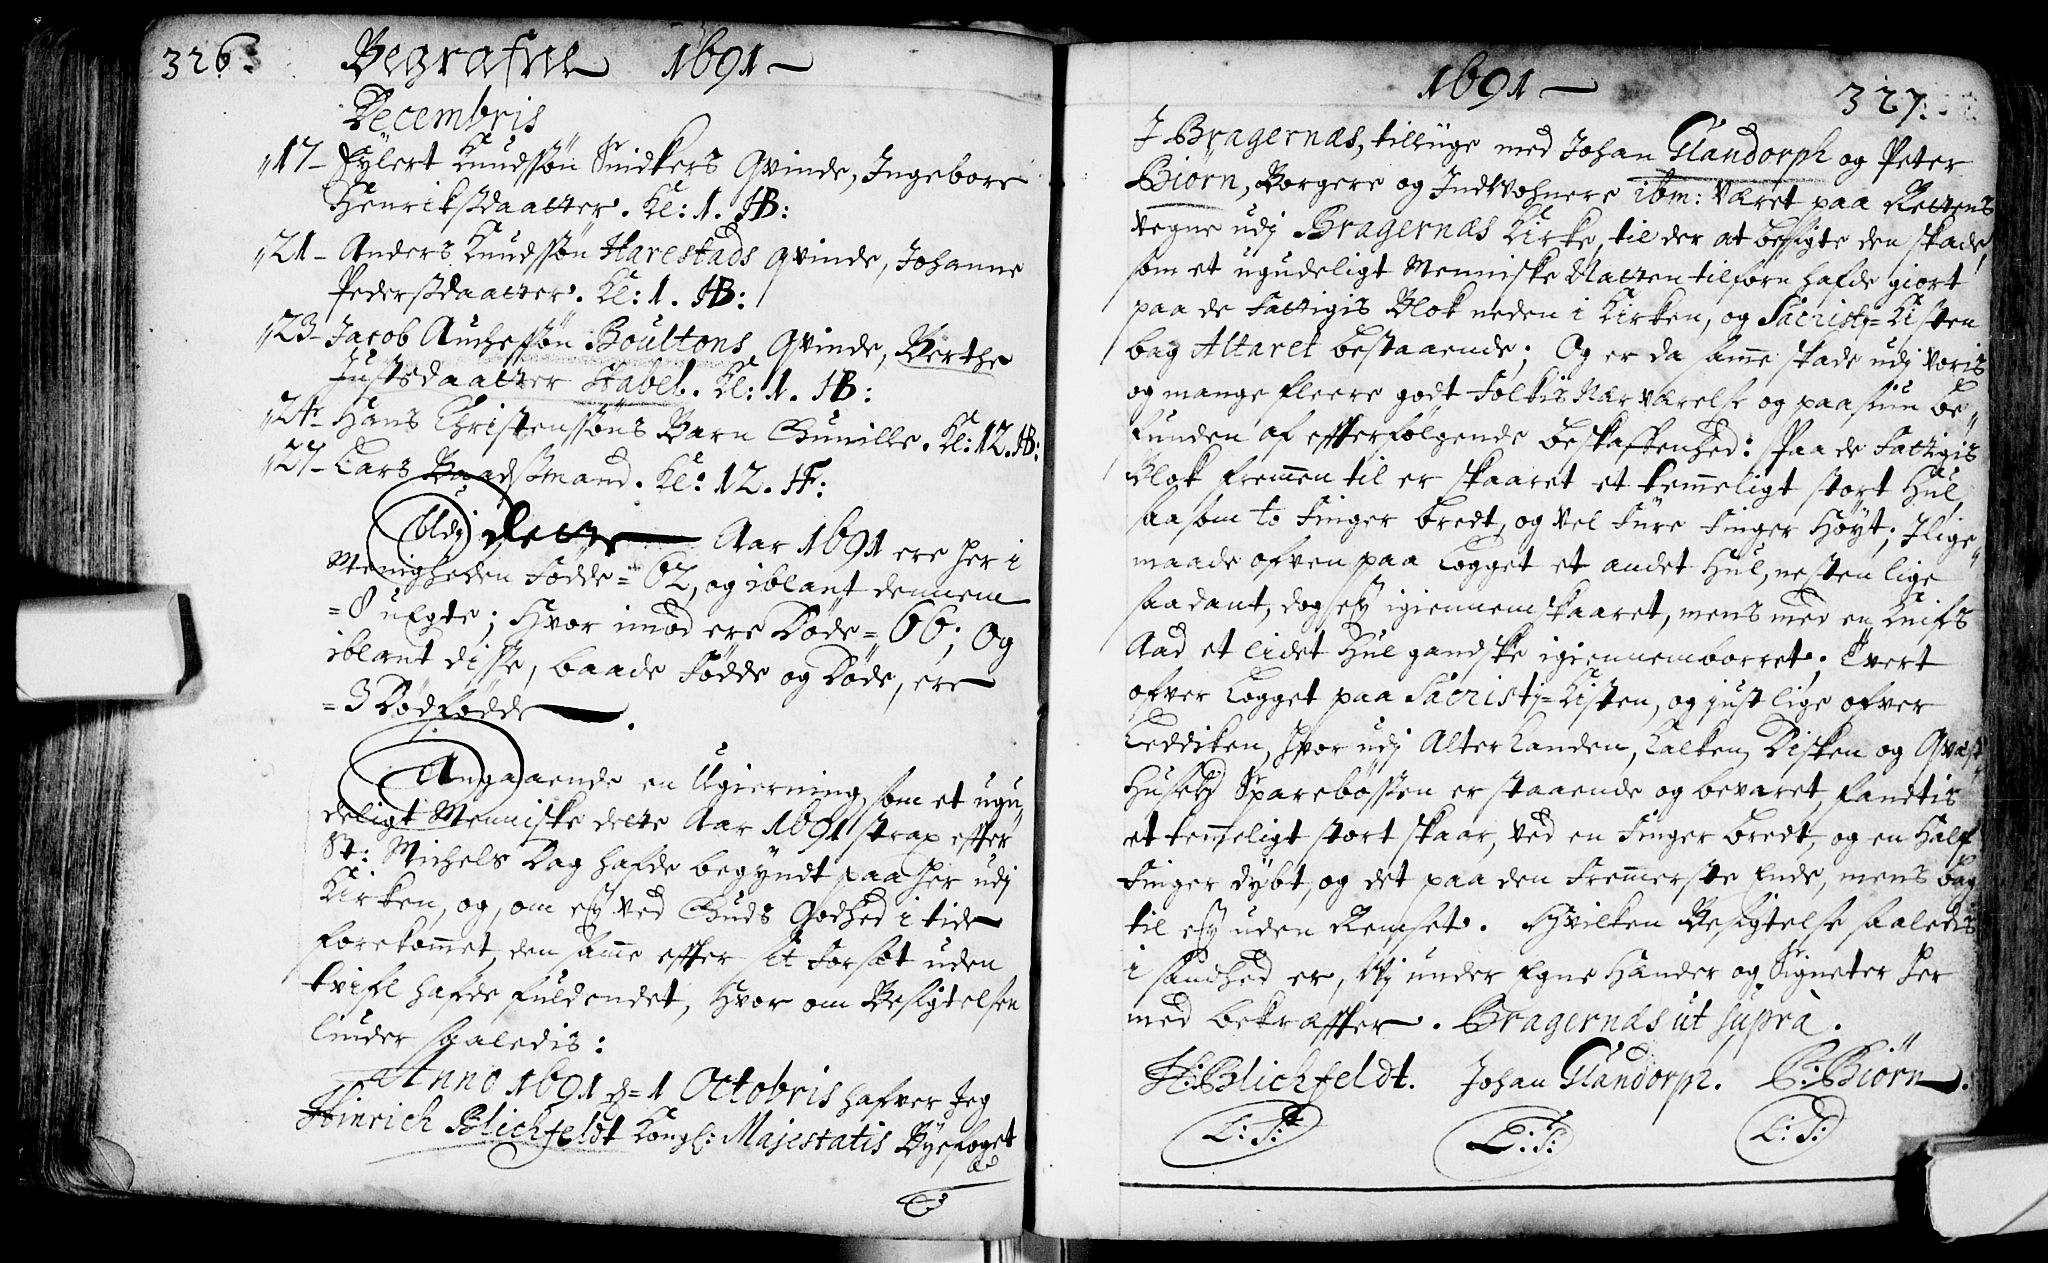 326. Begrafne 1691
Decembris
17 - Eÿlert Knudssøn Snidkers Qvinde, Ingebore
Henriksdaatter. Kl: 1. HB:
21 - Anders Knudssøn Harestads Qvinde, Johanne
Pedersdaatter. Kl: 1. HB:
23 - Jacob Boultons Qvinde, Berthe
Justsdaatter Stabel. Kl: 1. HB:
24 - Hans Christenssøns Barn Gunille. Kl: 12. HB:
27 - Lars Baadsmand. Kl: 12. H:
Udj dette Aar 1691 ere her i
Menigheden Fødde = 62, og iblant dennem
= 8 uægte; Hvor imod ere Døde = 66; Og
iblant disse, baade Fødde og Døde, ere
= 3 Dødfødde.
Angaaende en Ugierning, som et ugu-
deligt Menniske dette Aar 1691 strax effter
St: Michels Dag hafde begyndt paa her udj
Kirken, og, om eÿ ved Guds Godhed i tide
forekommet, den samme effter sit Forsæt uden
tvifl hafde fuldendet, Hvor om Besigtelsen
liuder saaledis:
Anno 1691 d= 1 Octobris hafver Jeg
Hinrich Blichfeldt Kongl: Majestatis Byefoget
1691 327.
I Bragernæs, tillige med Johan Glandorph og Peter
Biørn, Borgere og Indvohnere ibm: været paa Rettens
vegne udj Bragernæs Kirke, til der at besigte den skade,
som et ugudeligt Menniske Natten tilforn hafde giort
paa de Fattigis Blok neden i Kirken, og Sacristj-Kisten
bag Altaret bestaaende; Og er da samme skade udj voris
og mange fleere godt Folkis Nærværelse og paasiun be-
funden af effterfølgende beskaffenhed: Paa de Fattigis
Blok fremmen til er skaaret et temmeligt stort Hul,
saasom to Finger bredt, og vel fire Finger Høyt; Ilige-
maade ofven paa Logget et andet Hul, nesten lige
saadant, dog eÿ igiennemskaaret, mens med en Knifs
Aad et lidet Hul gandske igiennemborret. Tvert
ofver Logget paa Sacristj-Kisten, og just lige ofver
Leddiken, hvor udj Alter Kanden, Kalken, Disken og
Sparebøssen er staaende og bevaret, fandtis
et temmeligt stort skaar, ved en Finger bredt, og en Half
Finger dybt, og det paa den Fremmerste Ende, mens bag
til eÿ uden Remset. Hvilken Besigtelse saaledis
i sandhed er, Vj under Egne Hænder og Signeter her
med bekræffter. Bragernæs ut suprà.
H: Blichfeldt. Johan Glandorph. P: Biørn.
L: S: L: S: L: S: